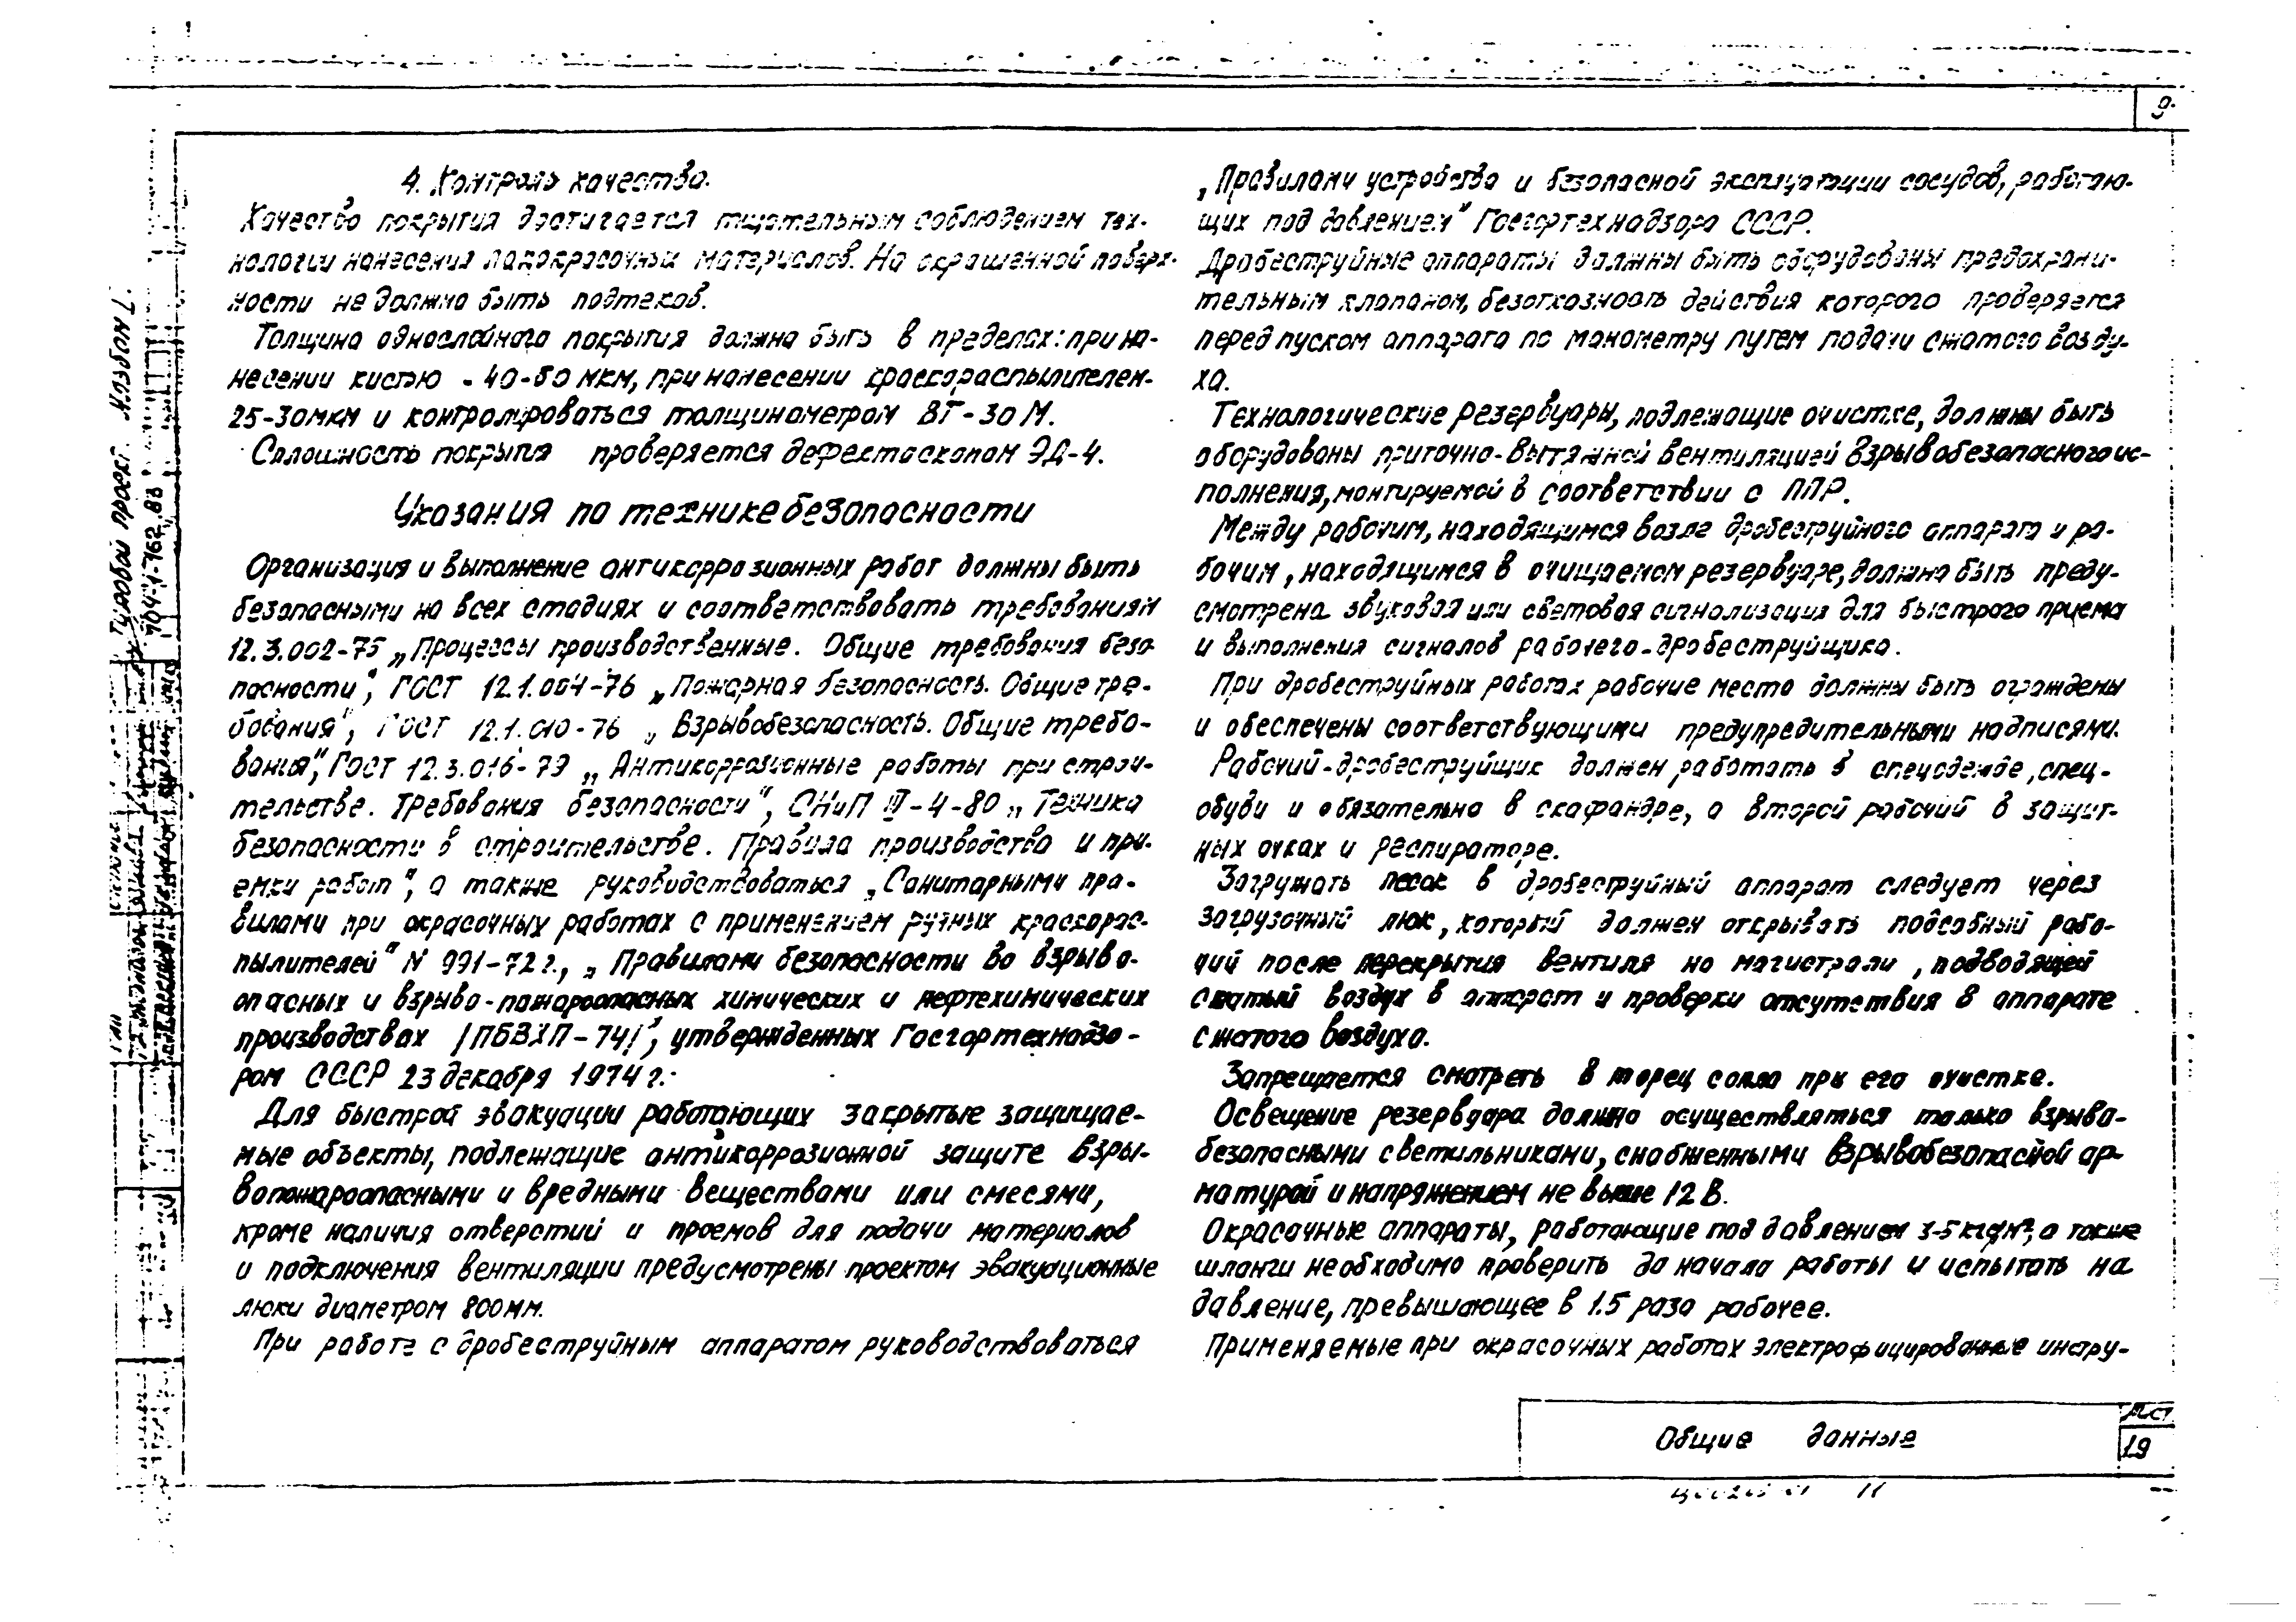 9
4. Контроль качества.
Качество покрытия достигается тщательным соблюдением тех-
нологии нанесения лакокрасочных материалов. На окрашенной поверх-
ности не должно быть подтеков.
Толщина однослойного покрытия должна быть в пределах: при на-
несении кистью - 40-50 мкм, при нанесении краскораспылителем-
25-30мкм и контролироваться толщинометром ВГ-30М.
Сплошность покрытия проверяется дефектоскопом ЭД-4.
Указания по технике безопасности
Организация и выполнение антикоррозионных работ должны быть
безопасными на всех стадиях и соответствовать требованиям
12.3.002-75 „Процессы производственные. Общие требования безо-
пасности", ГОСТ 12.1.004-76 „Пожарная безопасность. Общие тре-
бования", ГОСТ 12.1.010-76 „Взрывобезопасность. Общие требо-
вания", ГОСТ 12.3.016-79 „Антикоррозионные работы при строи-
тельстве. Требования безопасности", СНиП III-4-80 „Техника
безопасности в строительстве. Правила производства и при-
емки работ", а также руководствоваться „Санитарными пра-
вилами при окрасочных работах с применением ручных краскорас-
пылителей" N 991-72г., „Правилами безопасности во взрыво-
опасных и взрыво-пожароопасных химических и нефтехимических
производствах /ПБВХП-74/", утвержденных Госгортехнадзо-
ром СССР 23 декабря 1974г.
Для быстрой эвакуации работающих закрытые защищае-
мые объекты, подлежащие антикоррозионной защите взры-
вопожароопасными и вредными веществами или смесями,
кроме наличия отверстий и проемов для подачи материалов
и подключения вентиляции предусмотрены проектом эвакуационные
люки диаметром 800мм.
При работе с дробеструйным аппаратом руководствоваться
„Правилами устройства и безопасной эксплуатации сосудов, работаю-
щих под давлением" Госгортехнадзора СССР.
Дробеструйные аппараты должны быть оборудованы предохрани-
тельным клапаном, безотказность действия которого проверяется
перед пуском аппарата по манометру путем подачи сжатого возду-
ха.
Технологические резервуары, подлежащие очистке, должны быть
оборудованы приточно-вытяжной вентиляцией взрывобезопасного ис-
полнения, монтируемой в соответствии с ППР.
Между рабочим, находящимся возле дробеструйного аппарата и ра-
бочим, находящимся в очищаемом резервуаре, должна быть преду-
смотрена звуковая или световая сигнализация для быстрого приема
и выполнения сигналов рабочего-дробеструйщика.
При дробеструйных работах рабочие места должны быть ограждены
и обеспечены соответствующими предупредительными надписями.
Рабочий-дробеструйщик должен работать в спецодежде, спец-
обуви и обязательно в скафандре, а второй рабочий в защит-
ных очках и респираторе.
Загружать песок в дробеструйный аппарат следует через
загрузочный люк, который должен открывать подсобный рабо-
чий после перекрытия вентиля на магистрали, подводящей
сжатый воздух в аппарат и проверки отсутствия в аппарате
сжатого воздуха.
Запрещается смотреть в торец сопла при его очистке.
Освещение резервуара должно осуществляться только взрыво-
безопасными светильниками, снабженными взрывобезопасной ар-
матурой и напряжением не выше 12 В.
Окрасочные аппараты, работающие под давлением 3-5 а также
шланги необходимо проверить до начала работы и испытать на
давление, превышающее в 1.5 раза рабочее.
Применяемые при окрасочных работах электрофицированные инстру-
Общие данные
Лист
19
11
Типовой проект
704-1-162.83
Альбом I.